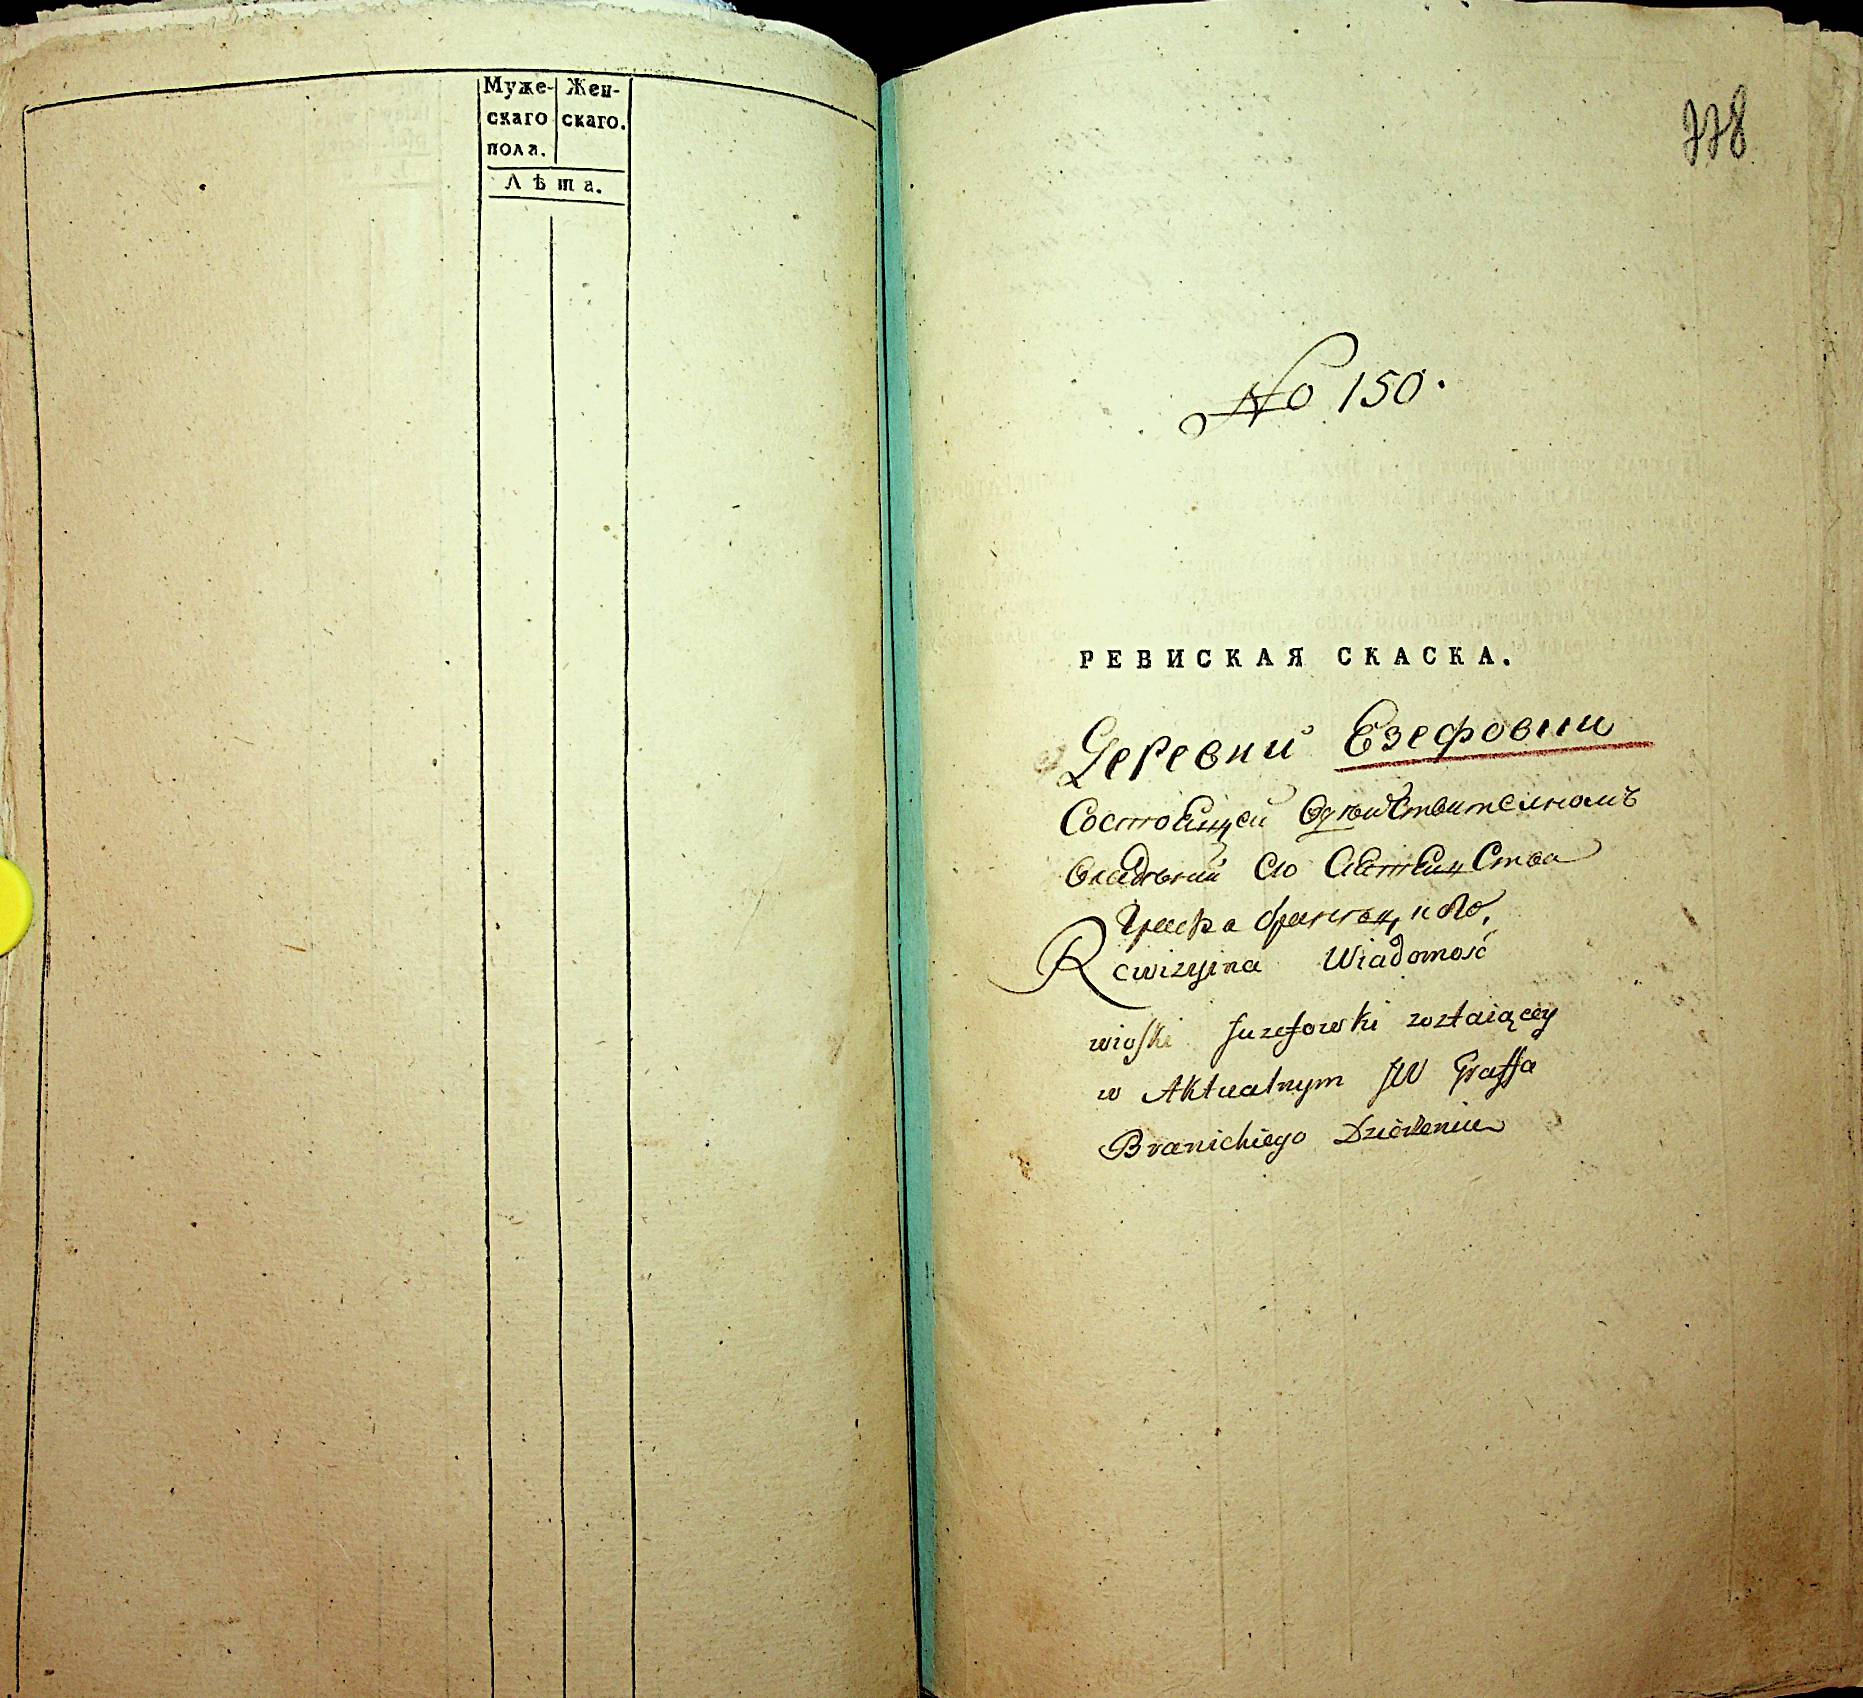 Муже- Жен-
скаго скаго.
пола.
Лѣта.
778
No 150.
РЕВИСКАЯ СКАСКА.
Деревни Езефовки
Состоящей вдѣйствителномъ
владѣнии Сіятства
Графа браницкого,
Rewizyina Wiadomość
wioski Juzefowki zoztaiącey
w Aktualnym JW Graffa
Branickiego Dzierżeniu